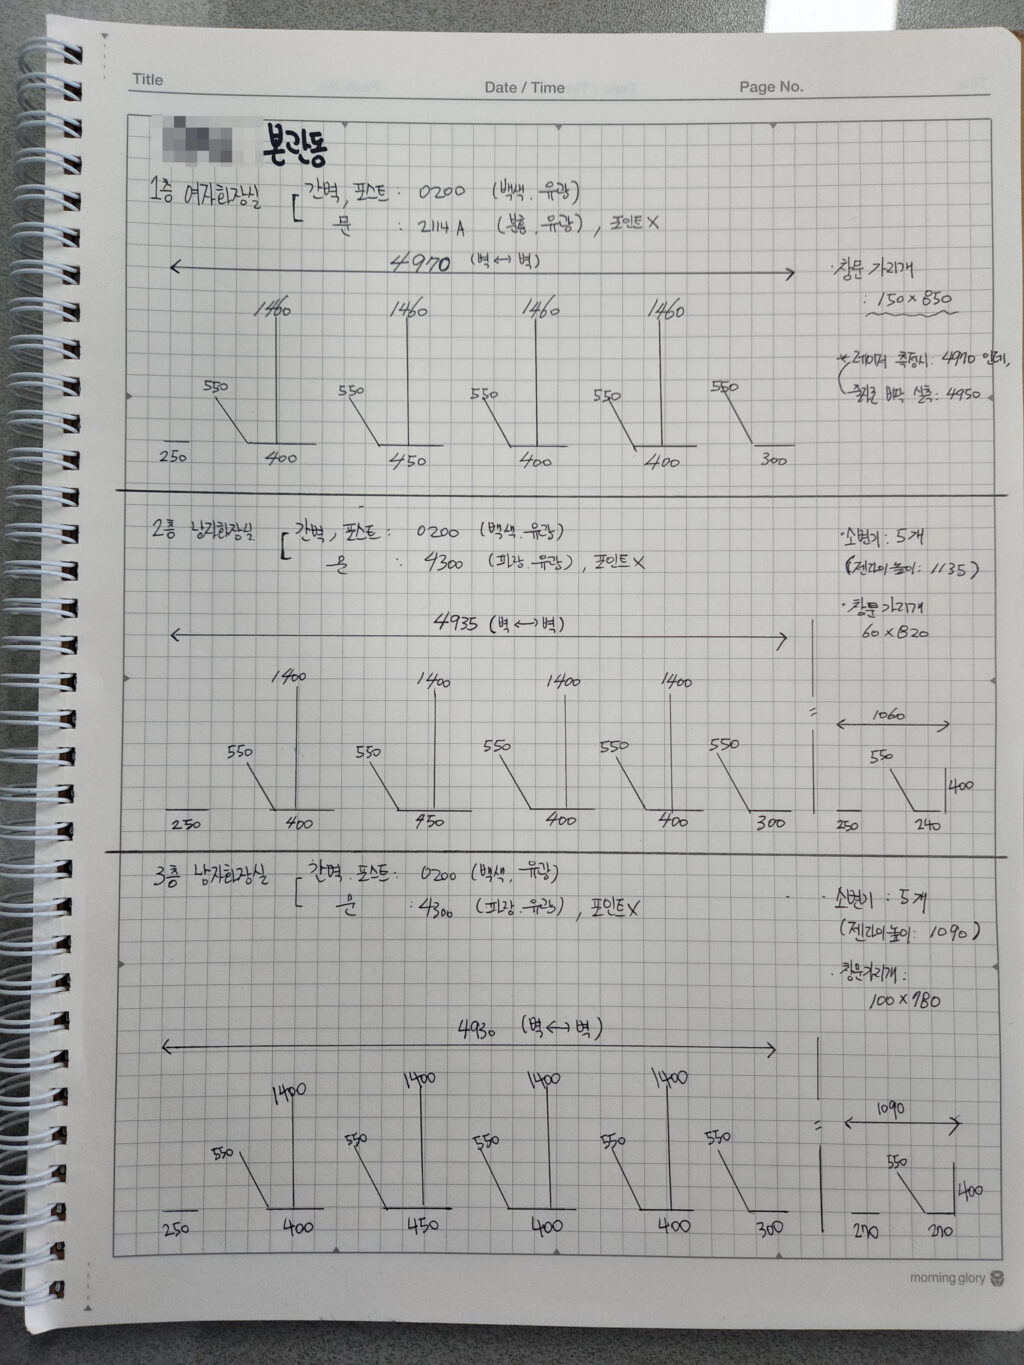 Title Date / Time Page No.
본관동
1층 여자화장실 간벽, 포스트 : 0200 (백색.유광)
문 : 2114A (분홍.유광), 포인트X
4970 (벽↔벽)
·창문 가리개
: 150×850
1460 1460 1460 1460
* 레이저 측정시: 4970 인데,
줄자로 바닥 실측: 4950
550 550 550 550 550
250 400 450 400 400 300
2층 남자화장실 간벽, 포스트 : 0200 (백색.유광)
문 : 4300 (파랑.유광), 포인트X
·소변기 : 5개
(젠다이높이: 1135)
·창문가리개
60×820
4935 (벽↔벽)
1400 1400 1400 1400
= 1060
550 550 550 550 550 550
400
250 400 450 400 400 300 250 240
3층 남자화장실 간벽.포스트: 0200 (백색.유광)
문 : 4300 (파랑.유광), 포인트X
·소변기 : 5개
(젠다이높이: 1090)
·창문가리개:
100×780
4930 (벽↔벽)
1400 1400 1400 1400
= 1090
550 550 550 550 550 550
400
250 400 450 400 400 300 270 270
morning glory